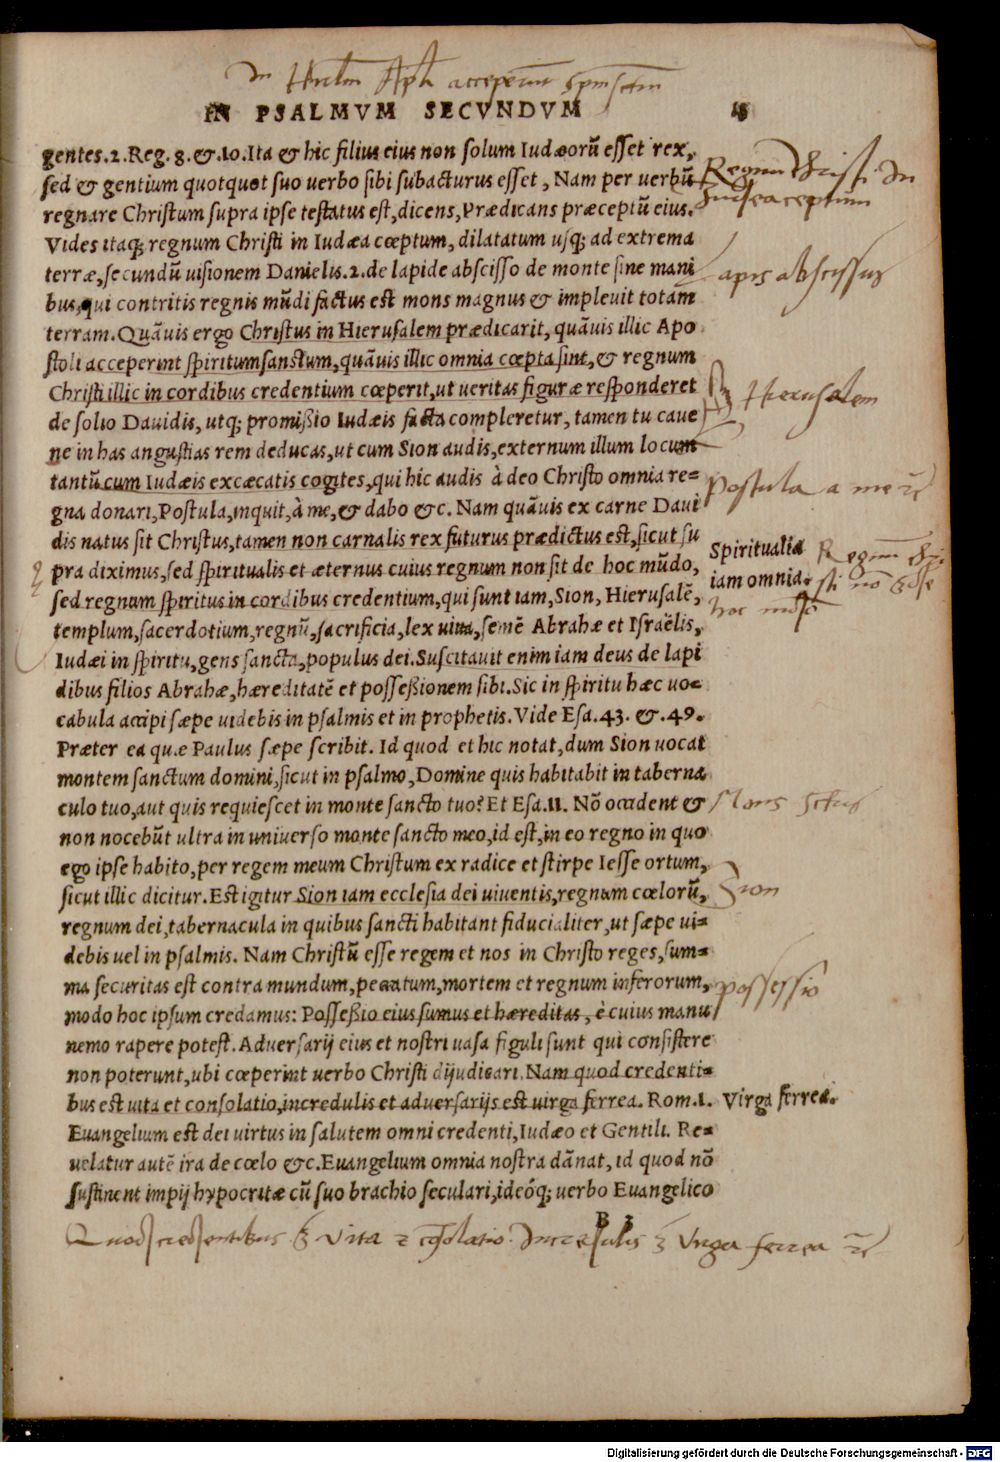 In Hierusalem Apli acceperunt spiritum sanctum
IN PSALMVM SECVNDVM
gentes.2.Reg.8.&.10.Ita & hic filius eius non solum Iudæorũ esset rex,
sed & gentium quotquot suo verbo sibi subacturus esset, Nam per verbũ
regnare Christum supra ipse testatus est,dicens,Prædicans præceptũ eius.
Regnum Christi in
Iudea ceptum
Vides itaq; regnum Christi in Iudæa cœptum, dilatatum usq; ad extrema
terræ,secundũ uisionem Danielis.2.de lapide abscisso de monte sine mani
Lapis abscissus
bus,qui contritis regnis mũdi factus est mons magnus & impleuit totam
terram.Quãuis ergo Christus in Hierusalem prædicarit, quãuis illic Apo
stoli acceperint spiritumsanctum,quãuis illic omnia cœpta sint,& regnum
Christi illic in cordibus credentium cœperit,ut ueritas figuræ responderet
Hierusalem
de solio Dauidis, utq; promißio Iudæis facta compleretur, tamen tu caue
ne in has angustias rem deducas,ut cum Sion audis,externum illum locum
tantũ cum Iudæis excæcatis cogites,qui hic audis à deo Christo omnia re=
Postula a me
gna donari,Postula,inquit,à me,& dabo &c. Nam quãuis ex carne Daui
dis natus sit Christus,tamen non carnalis rex futurus prædictus est,sicut su
Spiritualia
iam omnia.
Regnum Chri
sti nõ est de
hoc mũdo
pra diximus,sed spiritualis et æternus cuius regnum non sit de hoc mũdo,
sed regnum spiritus in cordibus credentium,qui sunt iam,Sion, Hierusalẽ,
templum,sacerdotium,regnũ,sacrificia,lex uiua,semẽ Abrahæ et Israëlis,
Iudæi in spiritu,gens sancta,populus dei.Suscitauit enim iam deus de lapi
dibus filios Abrahæ,hæreditatẽ et possessionem sibi.Sic in spiritu hæc uo=
cabula accipi sæpe uidebis in psalmis et in prophetis.Vide Esa.43. &.49.
Præter ea quæ Paulus sæpe scribit. Id quod et hic notat,dum Sion uocat
montem sanctum domini,sicut in psalmo,Domine quis habitabit in taberna
culo tuo,aut quis requiescet in monte sancto tuo? Et Esa.11. Nõ occident &
Mons sctus
non nocebũt ultra in uniuerso monte sancto meo,id est,in eo regno in quo
ego ipse habito,per regem meum Christum ex radice et stirpe Iesse ortum,
sicut illic dicitur.Est igitur Sion iam ecclesia dei uiuentis,regnum cœlorũ,
Zion
regnum dei,tabernacula in quibus sancti habitant fiducialiter,ut sæpe ui=
debis uel in psalmis. Nam Christũ esse regem et nos in Christo reges,sum=
ma securitas est contra mundum,peccatum,mortem et regnum inferorum,
possessio
modo hoc ipsum credamus: Possessio eius sumus et hæreditas, è cuius manu
nemo rapere potest.Aduersarij eius et nostri uasa figuli sunt qui consistere
non poterunt,ubi cœperint uerbo Christi dijudicari.Nam quod credenti=
bus est uita et consolatio,incredulis et aduersarijs est uirga ferrea. Rom.1.
Virga ferrea.
Euangelium est dei uirtus in salutem omni credenti,Iudæo et Gentili. Re=
uelatur autẽ ira de cœlo &c.Euangelium omnia nostra dãnat, id quod nõ
sustinent impij hypocritæ cũ suo brachio seculari,ideóq; uerbo Euangelico
B 3
Quod credentibus est vita et cõsolatio Incredulis est virga ferrea